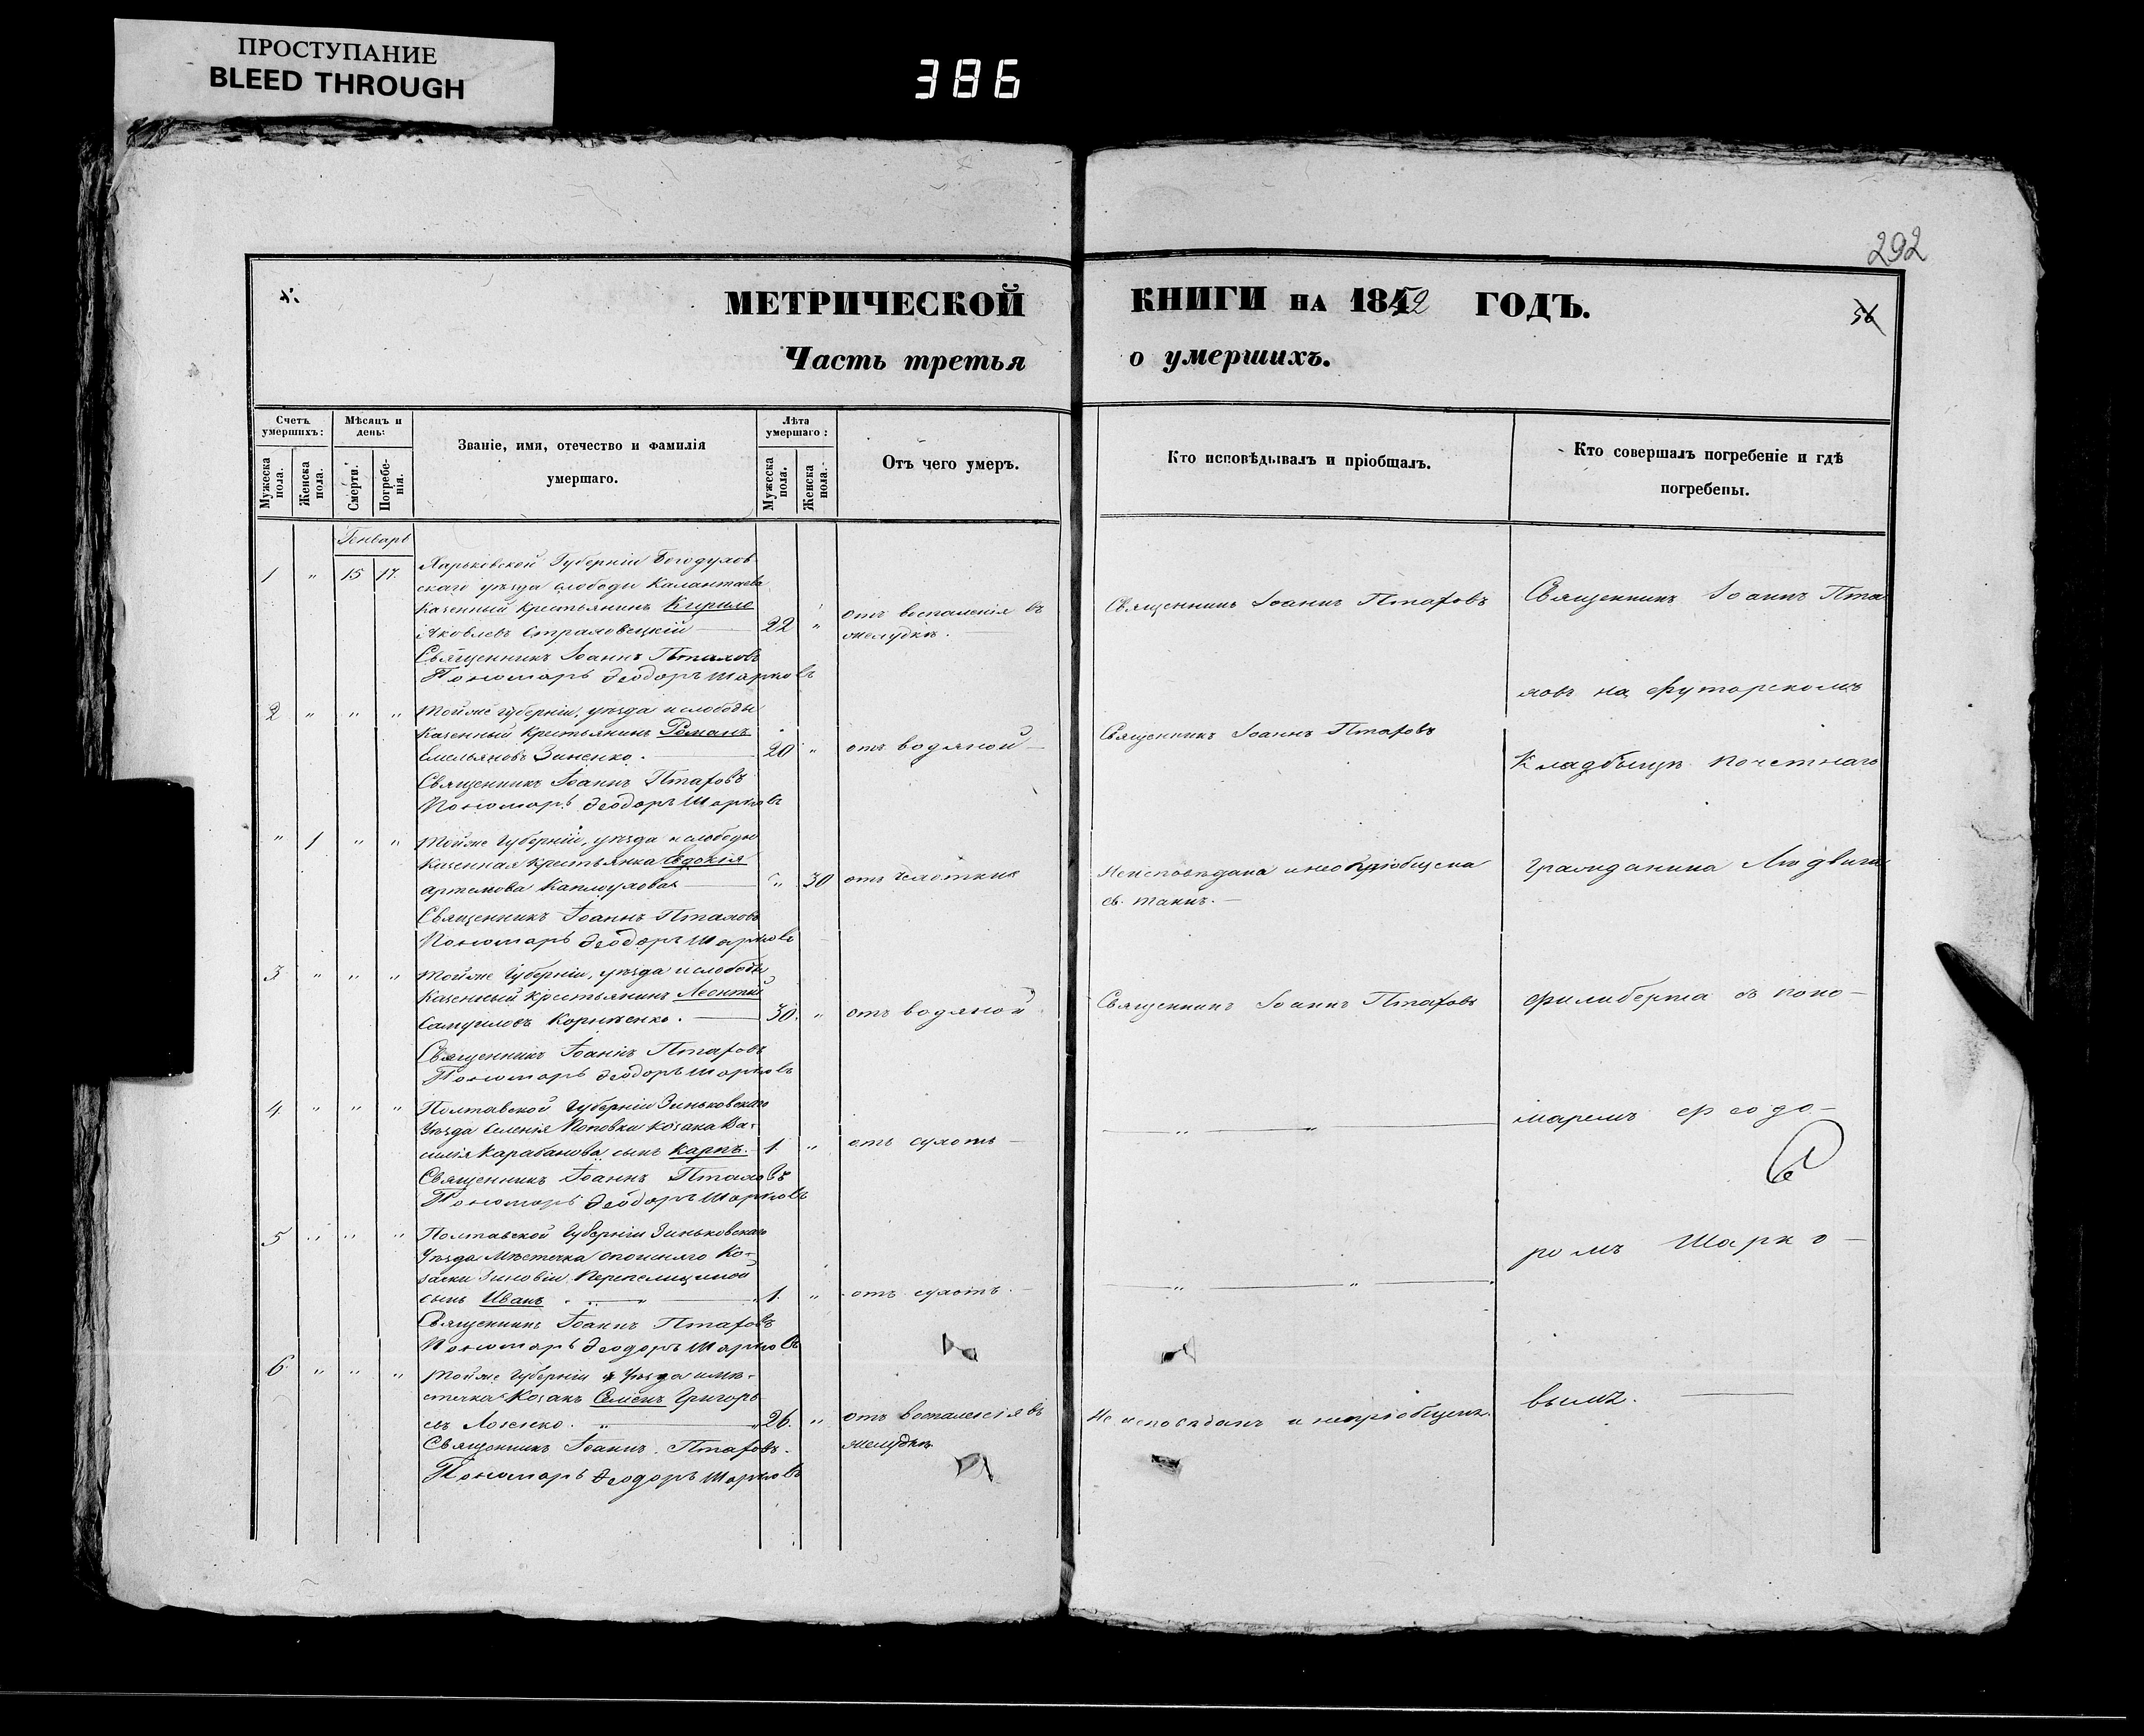 ПРОСТУПАНИЕ
BLEED THROUGH
386
292
МЕТРИЧЕСКОЙ КНИГИ НА 1852 ГОДЪ.
56
Часть третья о умершихъ.
Счетъ умершихъ:
Мужеска пола.
Женска пола.
Мѣсяцъ и день:
Смерти.
Погребенія.
Званіе, имя, отечество и фамилія
умершаго.
Лѣта умершаго:
Мужеска пола.
Женска пола.
Отъ чего умеръ.
Кто исповѣдывалъ и пріобщалъ.
Кто совершалъ погребеніе и гдѣ
погребены.
Генварь
1 " 15 17.
Харьковской Губерніи Богодухов
скаго уѣзда слободы Калантаева
казенный крестьянинъ Кирило
Яковлевъ Страловецкій
22 "
отъ воспаленія въ
желудкѣ.
Священникъ Іоаннъ Птаховъ
Священникъ Іоаннъ Птаховъ
Пономарь Ѳеодоръ Шарковъ
2 " " "
Тойже губерніи, уѣзда и слободы
казенный крестьянинъ Романъ
Емельяновъ Зиненко.
20 "
отъ водяной
Священникъ Іоаннъ Птаховъ
Священникъ Іоаннъ Птаховъ
Пономарь Ѳеодоръ Шарковъ
" 1 " "
Тойже Губерніи, уѣзда и слободы
казенная крестьянка Евдокія
Артемова
" 30
отъ чахотки
Неисповѣдана и непріобщена
св. таинъ.
Священникъ Іоаннъ Птаховъ
Пономарь Ѳеодоръ Шарковъ
3 " " "
Тойже Губерніи, уѣзда и слободы
казенный крестьянинъ Леонтій
Самуиловъ Корнѣенко.
30. "
отъ водяной.
Священникъ Іоаннъ Птаховъ
Священникъ Іоаннъ Птаховъ
Пономарь Ѳеодоръ Шарковъ
4. " " "
Полтавской Губерніи Зиньковскаго
Уѣзда Селенія Поповки козака Ва-
силія Карабанова сынъ Карпъ.
1. "
отъ сухотъ
" "
Священникъ Іоаннъ Птаховъ
Пономарь Ѳеодоръ Шарковъ
5 " " "
Полтавской Губерніи Зиньковскаго
Уѣзда Мѣстечка Опошняго Ко-
зачки Зиновіи Перепелициной
сынъ Иванъ
1. "
отъ сухотъ.
" "
Священникъ Іоаннъ Птаховъ
Пономарь Ѳеодоръ Шарковъ
6. " " "
Тойже Губерніи и Уѣзда и мѣ-
стечка Козакъ Семенъ Григорь
евъ
26. "
отъ воспаленія въ
желудкѣ
Не исповѣданъ и непріобщенъ.
Священникъ Іоаннъ Птаховъ.
Пономарь Ѳеодоръ Шарковъ
Священникъ Іоаннъ Пта
ховъ на Футорскомъ
Кладбищѣ почетнаго
гражданина Людвига
Филиберта съ поно-
маремъ Ѳеодо-
ромъ Шарко-
вымъ.